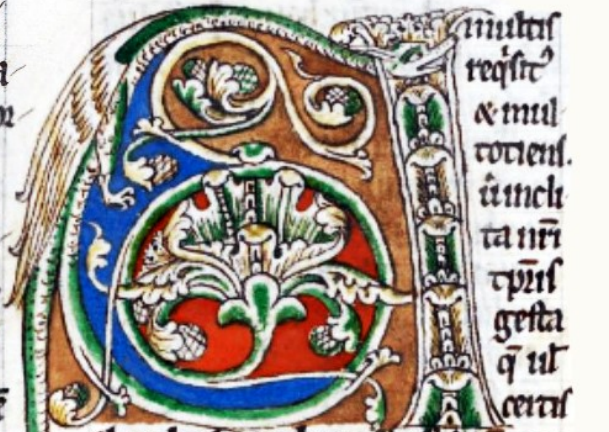 A multis
req̇sit᷒
& mul
totiens.
ū incli
ta nr̄i
tp̄ris
gesta
q̄ ul̄
certis